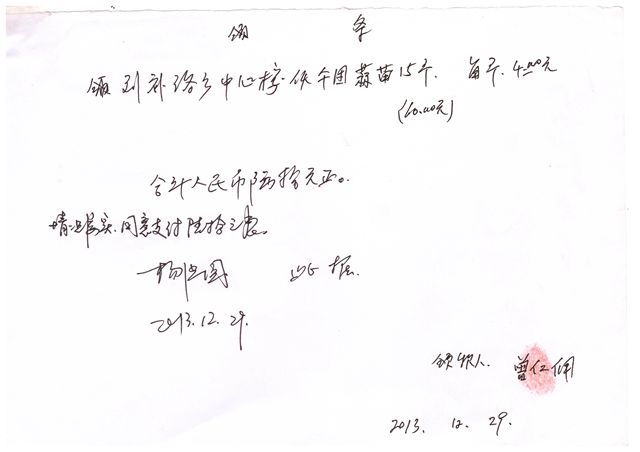 领 条
领到补洛乡中心校供午团蒜苗15斤. 每斤.4.00元
(60.00元)
合计人民币陆拾元正。
情况属实.同意支付陆拾元
此据.
2013.12.29.
领款人. 曾仁佣
2013. 12. 29.